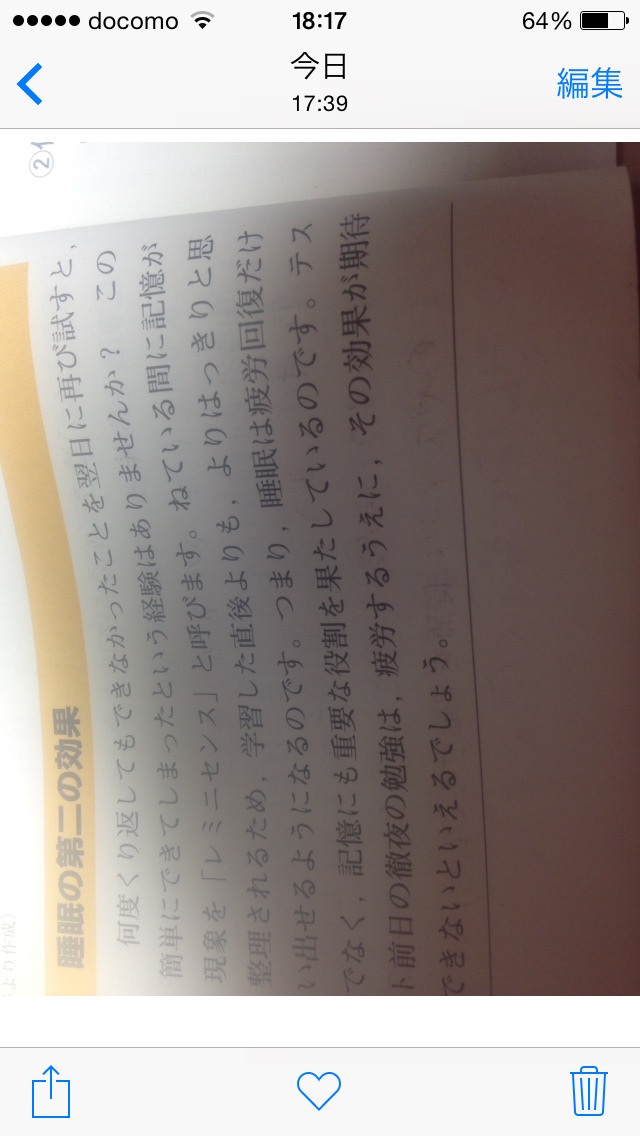 docomo
18:17
64%
今日
17:39
編集
②
より作成）
睡眠の第二の効果
何度くり返してもできなかったことを翌日に再び試すと，
簡単にできてしまったという経験はありませんか？　この
現象を「レミニセンス」と呼びます。ねている間に記憶が
整理されるため，学習した直後よりも，よりはっきりと思
い出せるようになるのです。つまり，睡眠は疲労回復だけ
でなく，記憶にも重要な役割を果たしているのです。テス
ト前日の徹夜の勉強は，疲労するうえに，その効果が期待
できないといえるでしょう。